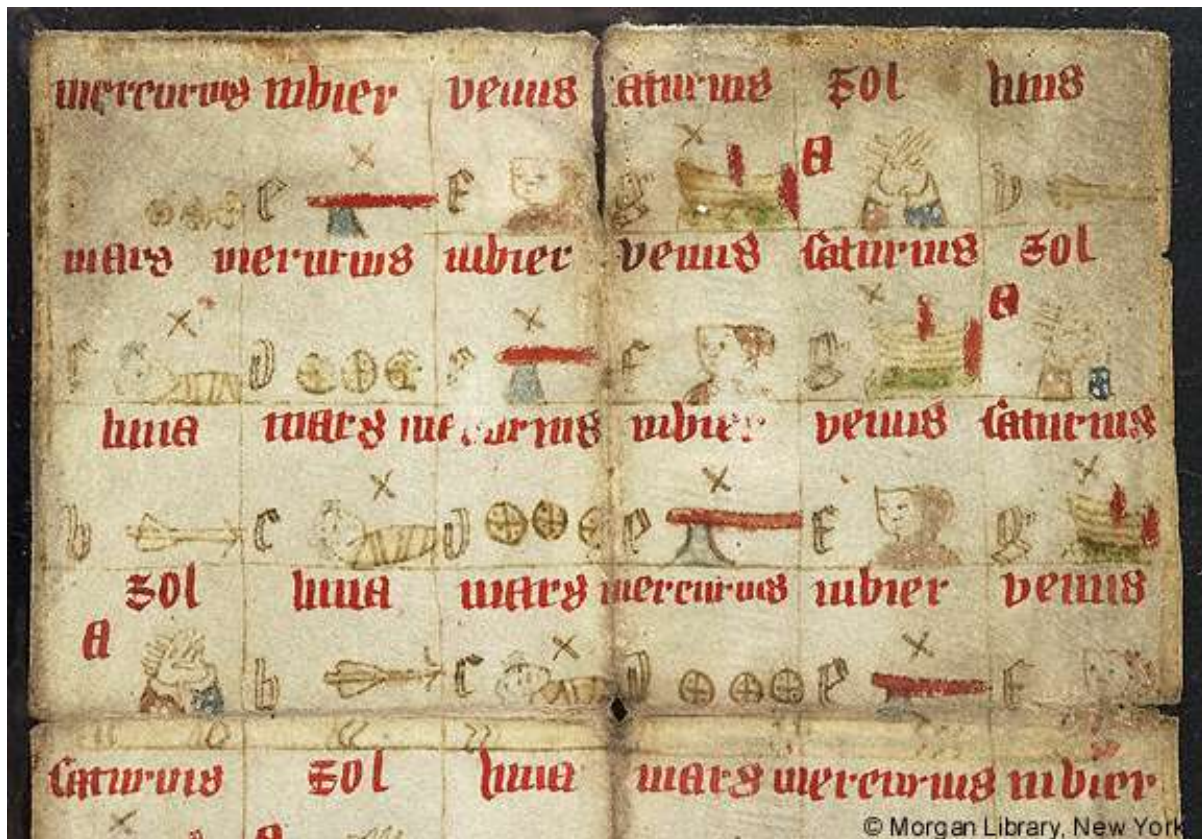 mercurius iubier venus saturnus sol luna
e f g A b
mars mercurius iubier venus saturnus sol
c d e f g A
luna mars mercurius iubier venus saturnus
b c d e f g
sol luna mars mercurius iubier venus
A b c d e f
saturnus sol luna mars mercurius iubier
© Morgan Library, New York